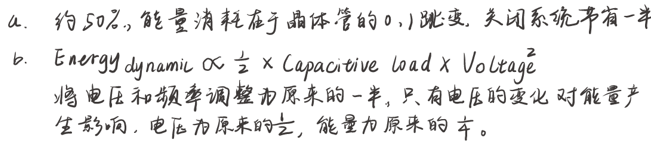 a. 约50%，能量消耗在于晶体管的0,1跳变，关闭系统节省一半
b. Energy dynamic ∝ 1/2 × Capacitive load × Voltage²
将电压和频率调整为原来的一半，只有电压的变化对能量产
生影响，电压为原来的1/2，能量为原来的1/4。